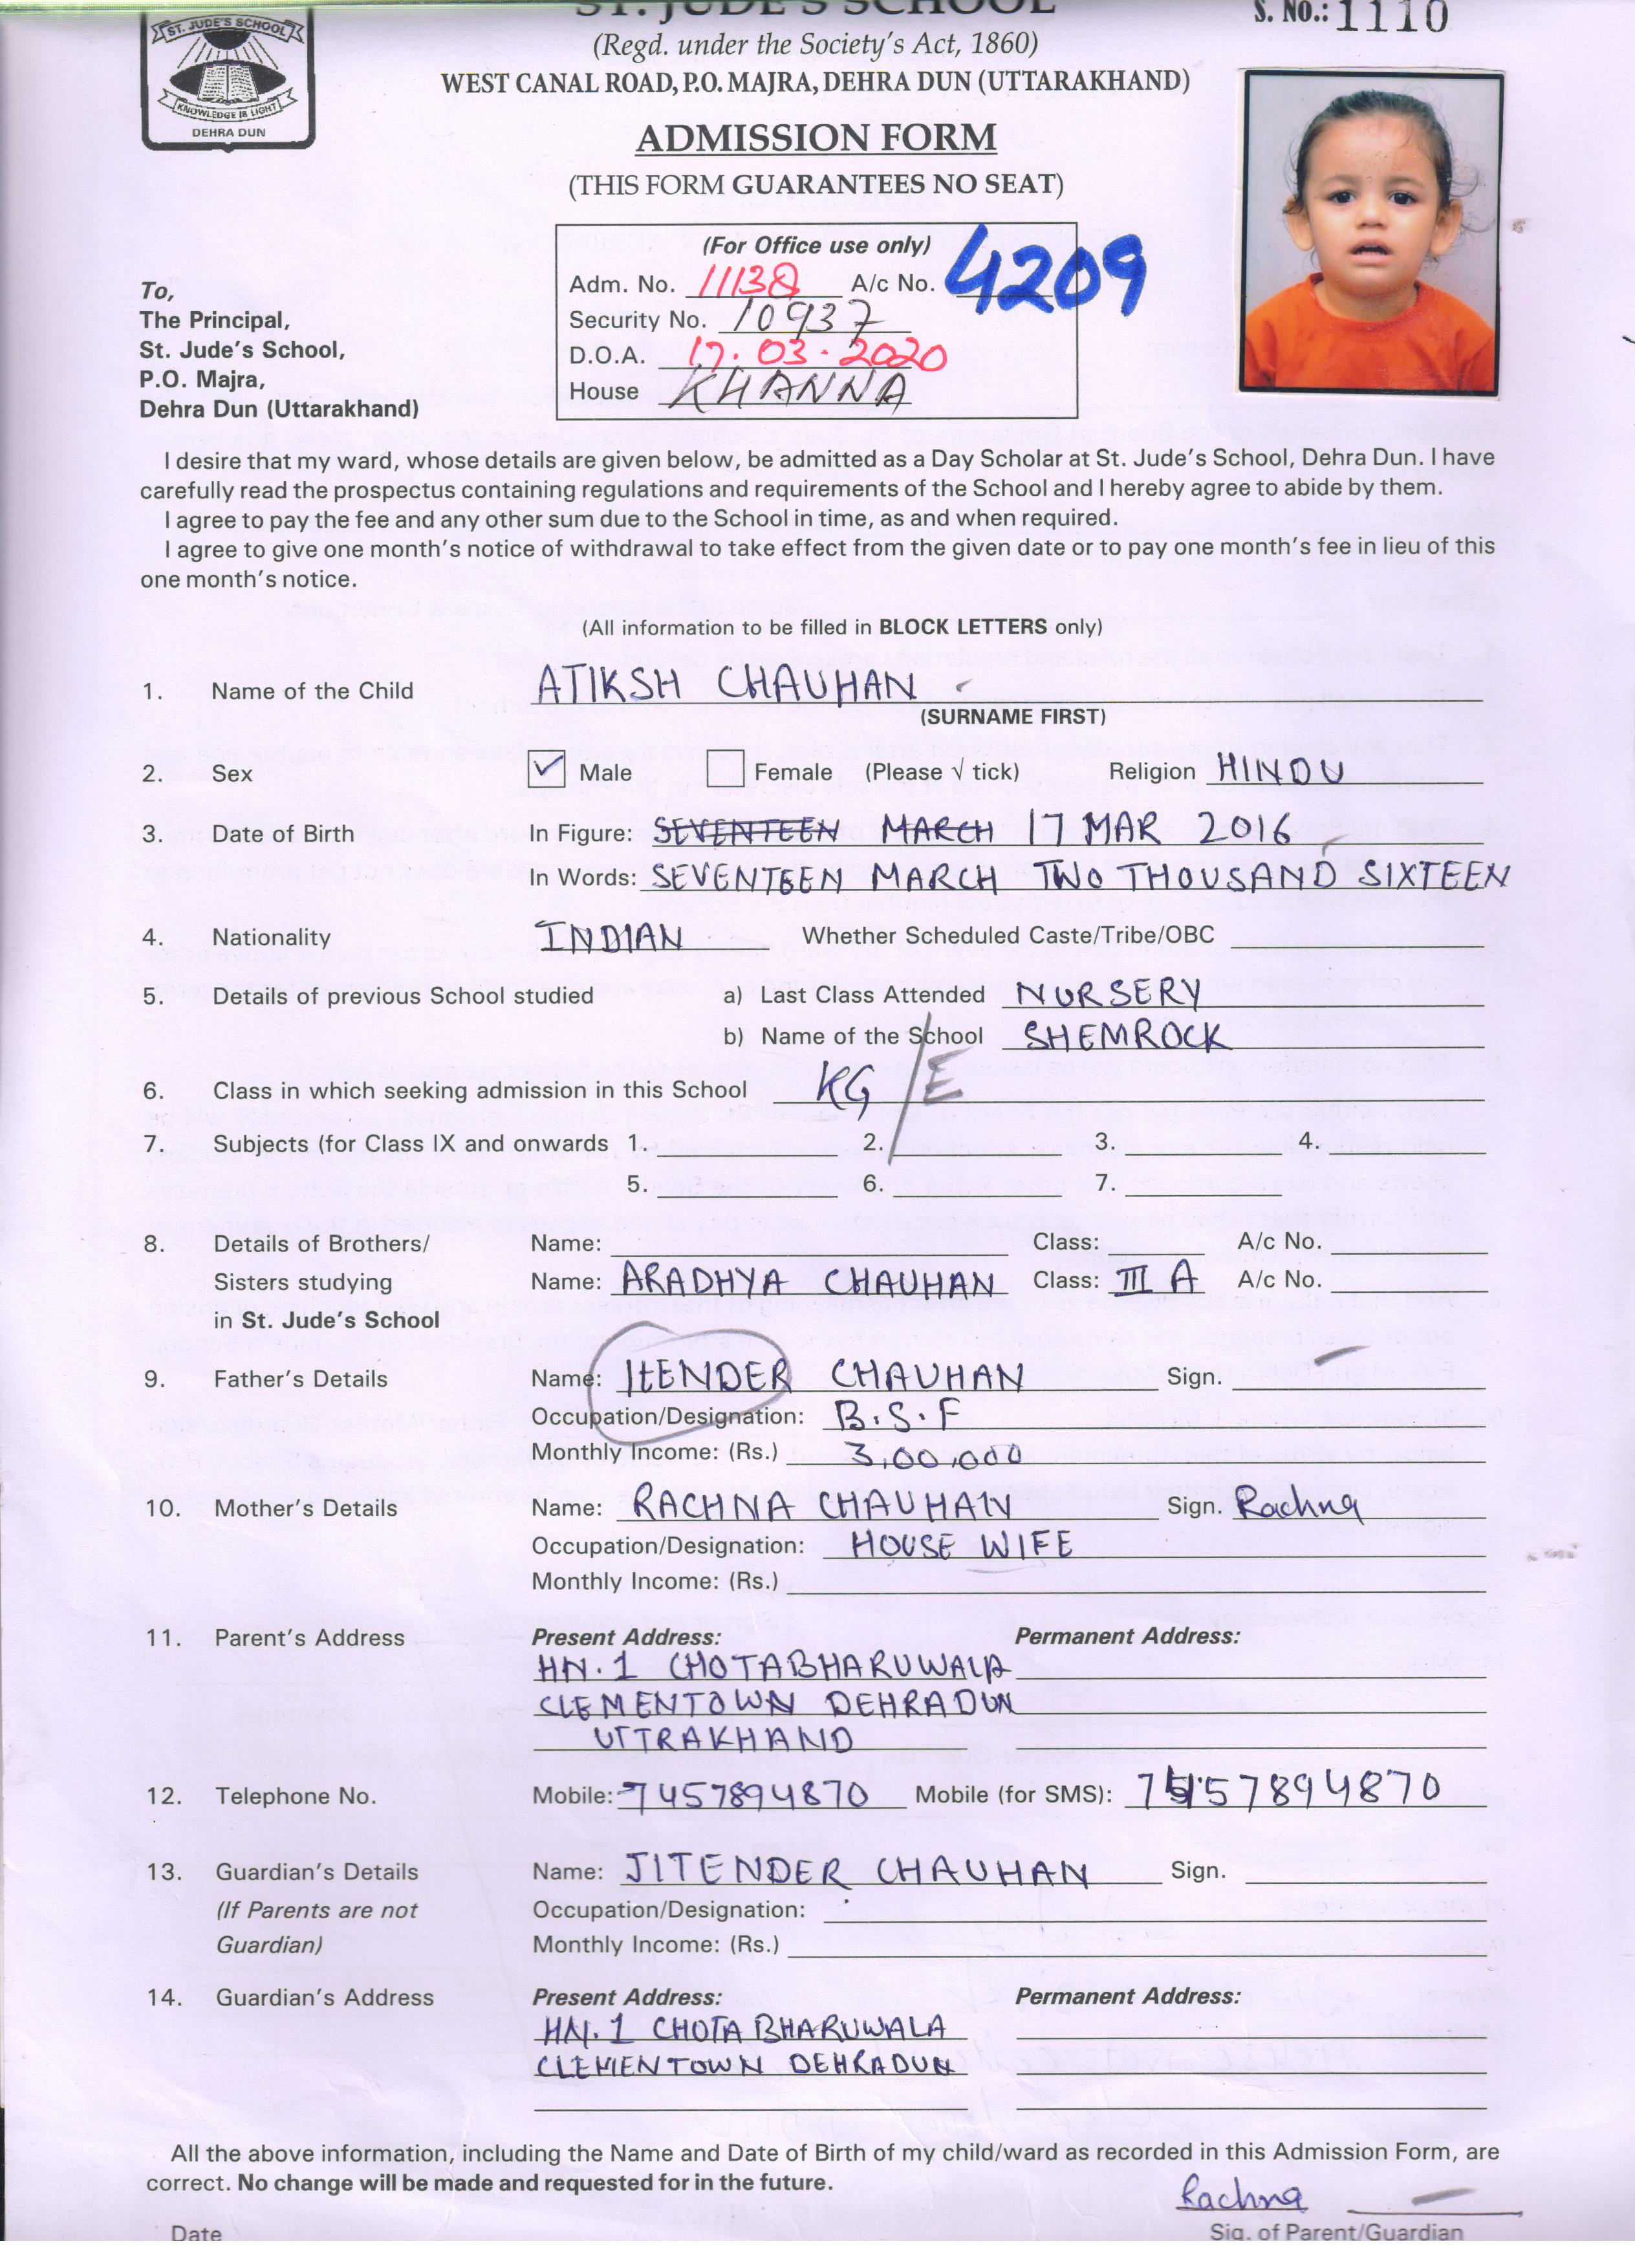 ST. JUDE'S SCHOOL
S. No.: 1110
ST. JUDE'S SCHOOL
KNOWLEDGE IS LIGHT
DEHRA DUN
(Regd. under the Society's Act, 1860)
WEST CANAL ROAD, P.O. MAJRA, DEHRA DUN (UTTARAKHAND)
ADMISSION FORM
(THIS FORM GUARANTEES NO SEAT)
(For Office use only)
Adm. No. 11138 A/c No. 4209
Security No. 10937
D.O.A. 17.03.2020
House KHANNA
To,
The Principal,
St. Jude's School,
P.O. Majra,
Dehra Dun (Uttarakhand)
I desire that my ward, whose details are given below, be admitted as a Day Scholar at St. Jude's School, Dehra Dun. I have
carefully read the prospectus containing regulations and requirements of the School and I hereby agree to abide by them.
I agree to pay the fee and any other sum due to the School in time, as and when required.
I agree to give one month's notice of withdrawal to take effect from the given date or to pay one month's fee in lieu of this
one month's notice.
(All information to be filled in BLOCK LETTERS only)
1. Name of the Child ATIKSH CHAUHAN
(SURNAME FIRST)
2. Sex Male Female (Please √ tick) Religion HINDU
3. Date of Birth In Figure: SEVENTEEN MARCH 17 MAR 2016
In Words: SEVENTEEN MARCH TWO THOUSAND SIXTEEN
4. Nationality INDIAN Whether Scheduled Caste/Tribe/OBC
5. Details of previous School studied a) Last Class Attended NURSERY
b) Name of the School SHEMROCK
6. Class in which seeking admission in this School KG/E
7. Subjects (for Class IX and onwards 1. 2. 3. 4.
5. 6. 7.
8. Details of Brothers/ Name: Class: A/c No.
Sisters studying Name: ARADHYA CHAUHAN Class: III A A/c No.
in St. Jude's School
9. Father's Details Name: ItENDER CHAUHAN Sign.
Occupation/Designation: B.S.F
Monthly Income: (Rs.) 3,00,000
10. Mother's Details Name: RACHNA CHAUHAN Sign. Rachna
Occupation/Designation: HOUSE WIFE
Monthly Income: (Rs.)
11. Parent's Address Present Address: Permanent Address:
HN.1 CHOTABHARUWALA
CLEMENTOWN DEHRADUN
UTTRAKHAND
12. Telephone No. Mobile: 7457894870 Mobile (for SMS): 7457894870
13. Guardian's Details Name: JITENDER CHAUHAN Sign.
(If Parents are not Occupation/Designation:
Guardian) Monthly Income: (Rs.)
14. Guardian's Address Present Address: Permanent Address:
HN.1 CHOTA BHARUWALA
CLEMENTOWN DEHRADUN
All the above information, including the Name and Date of Birth of my child/ward as recorded in this Admission Form, are
correct. No change will be made and requested for in the future.
Rachna
Date Sig. of Parent/Guardian